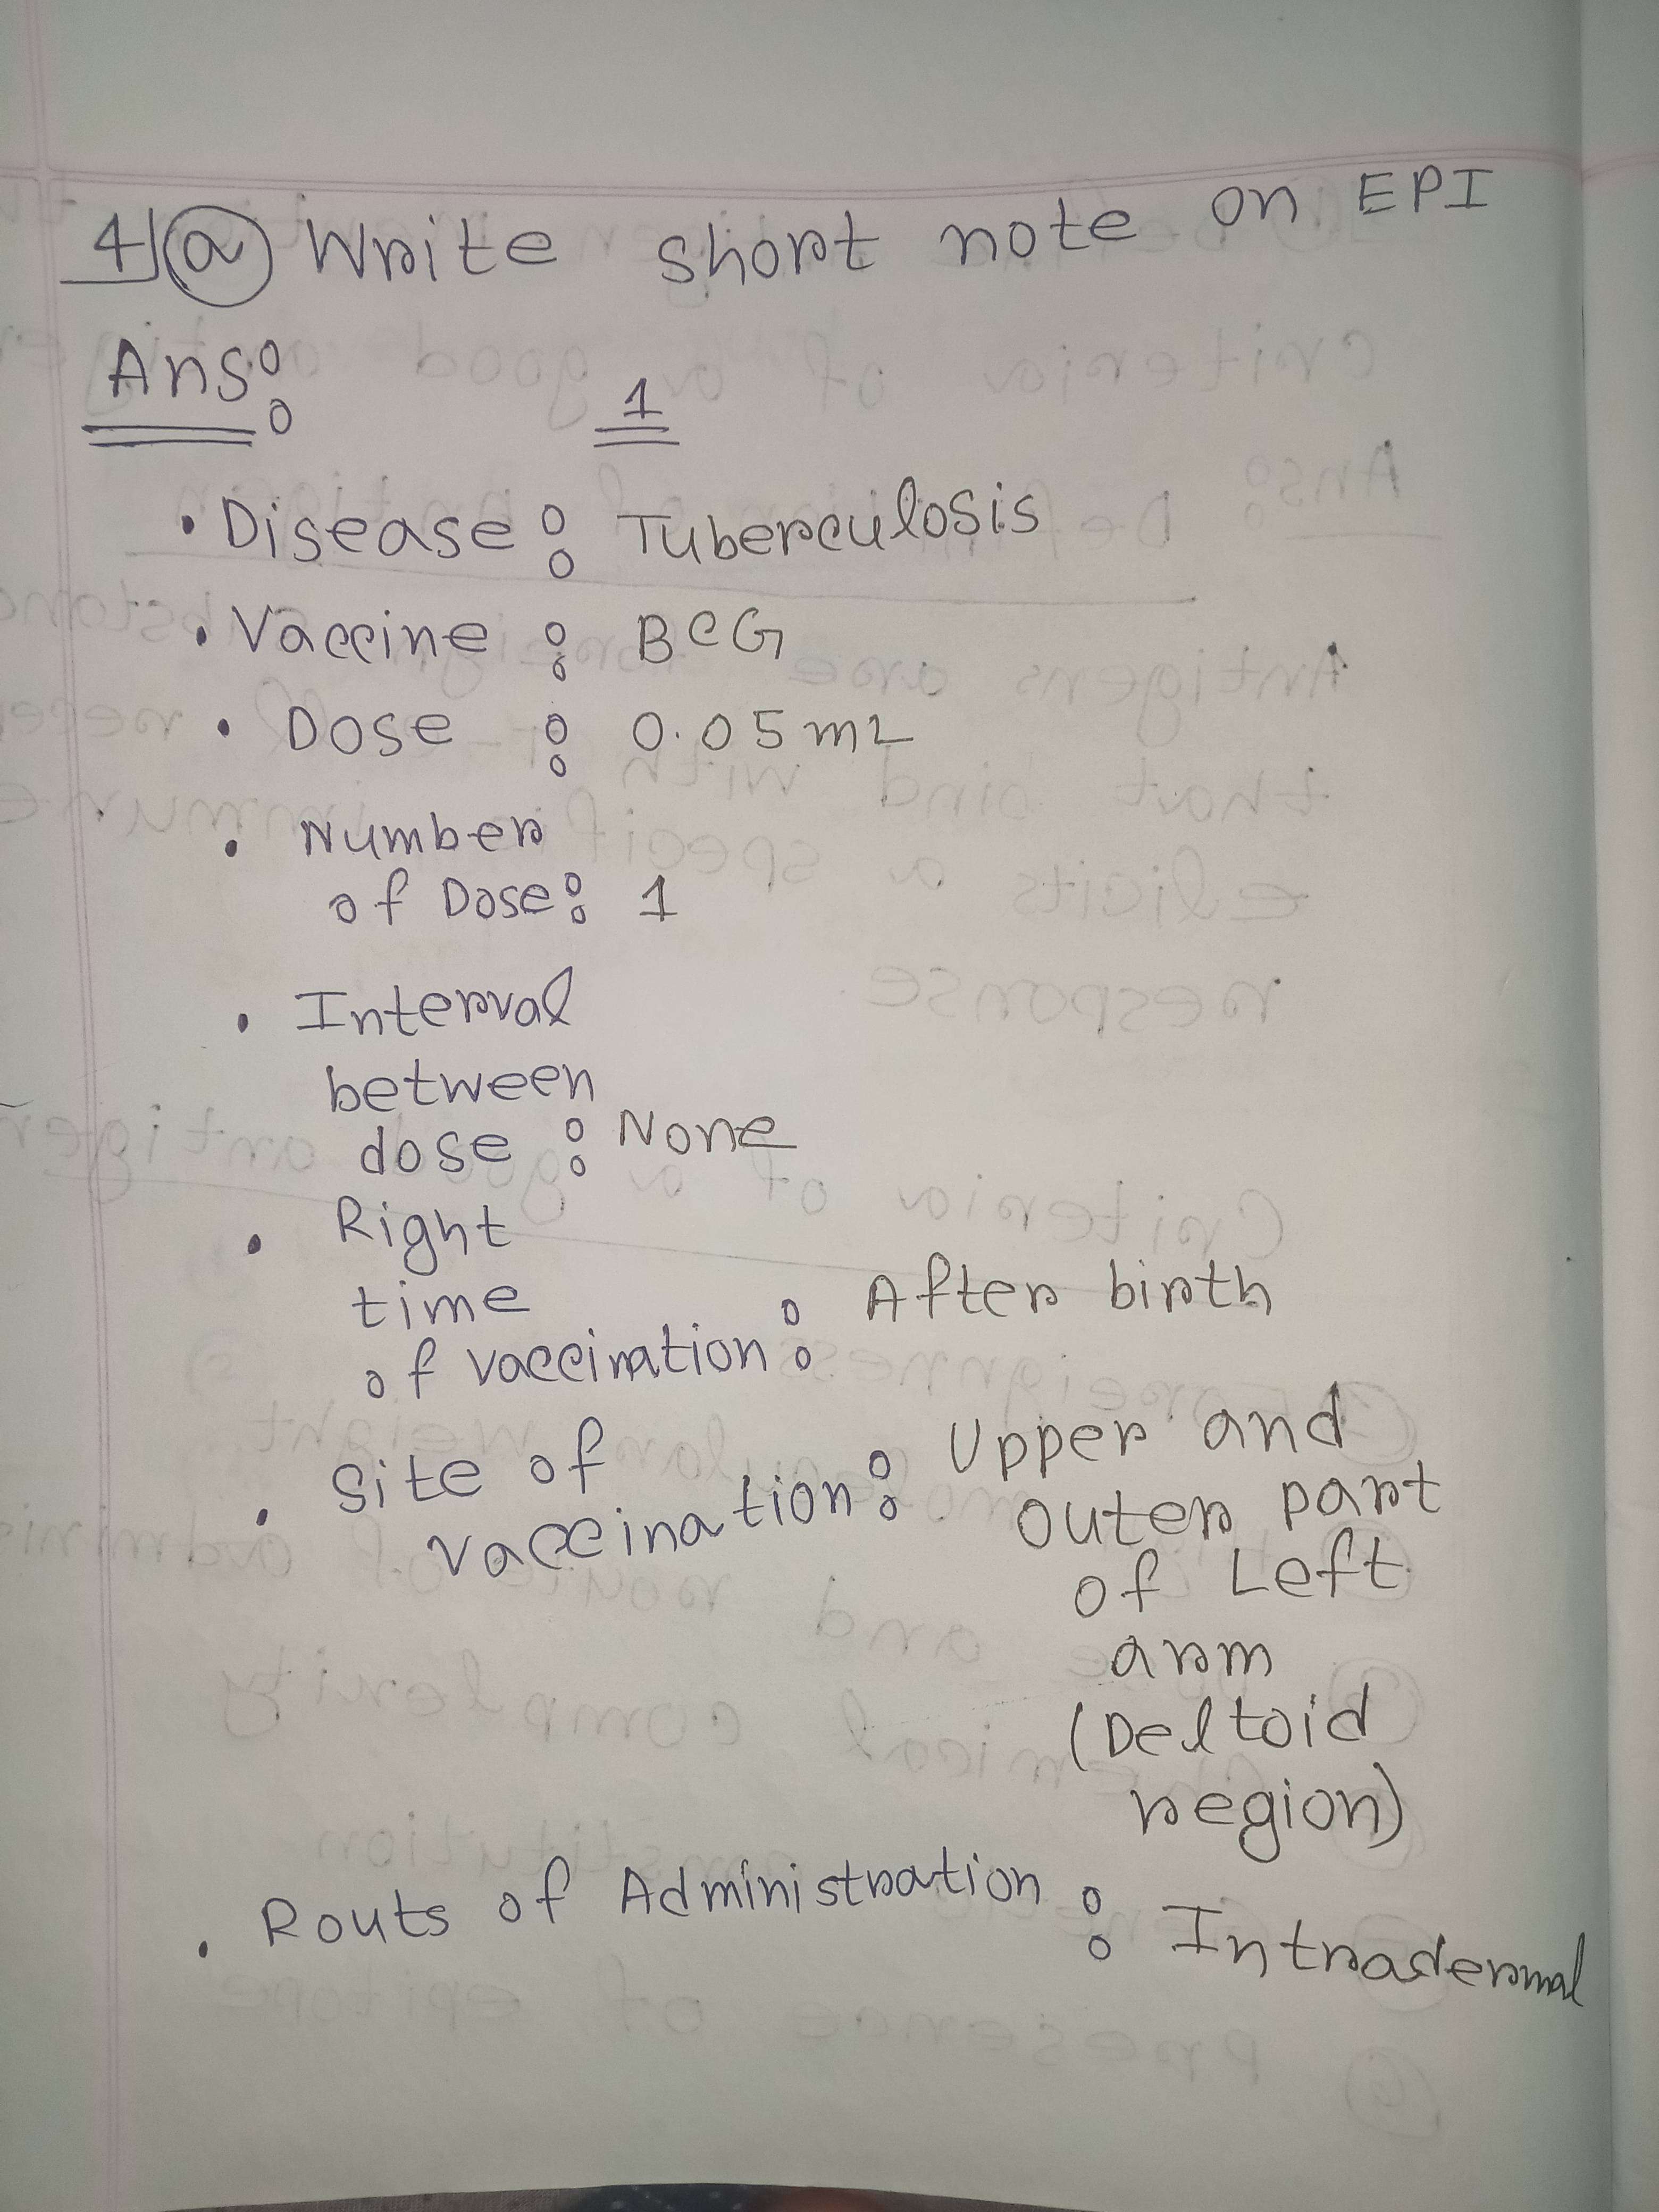 4 a Write short note on EPI
Ans:
1
• Disease : Tuberculosis
• Vaccine : BCG
• Dose : 0.05 mL
• Number
of Dose: 1
• Interval
between
dose : None
• Right
time
of vaccination : After birth
• Site of
vaccination : Upper and
outer part
of Left
arm
(Deltoid
region)
• Routs of Administration : Intradermal